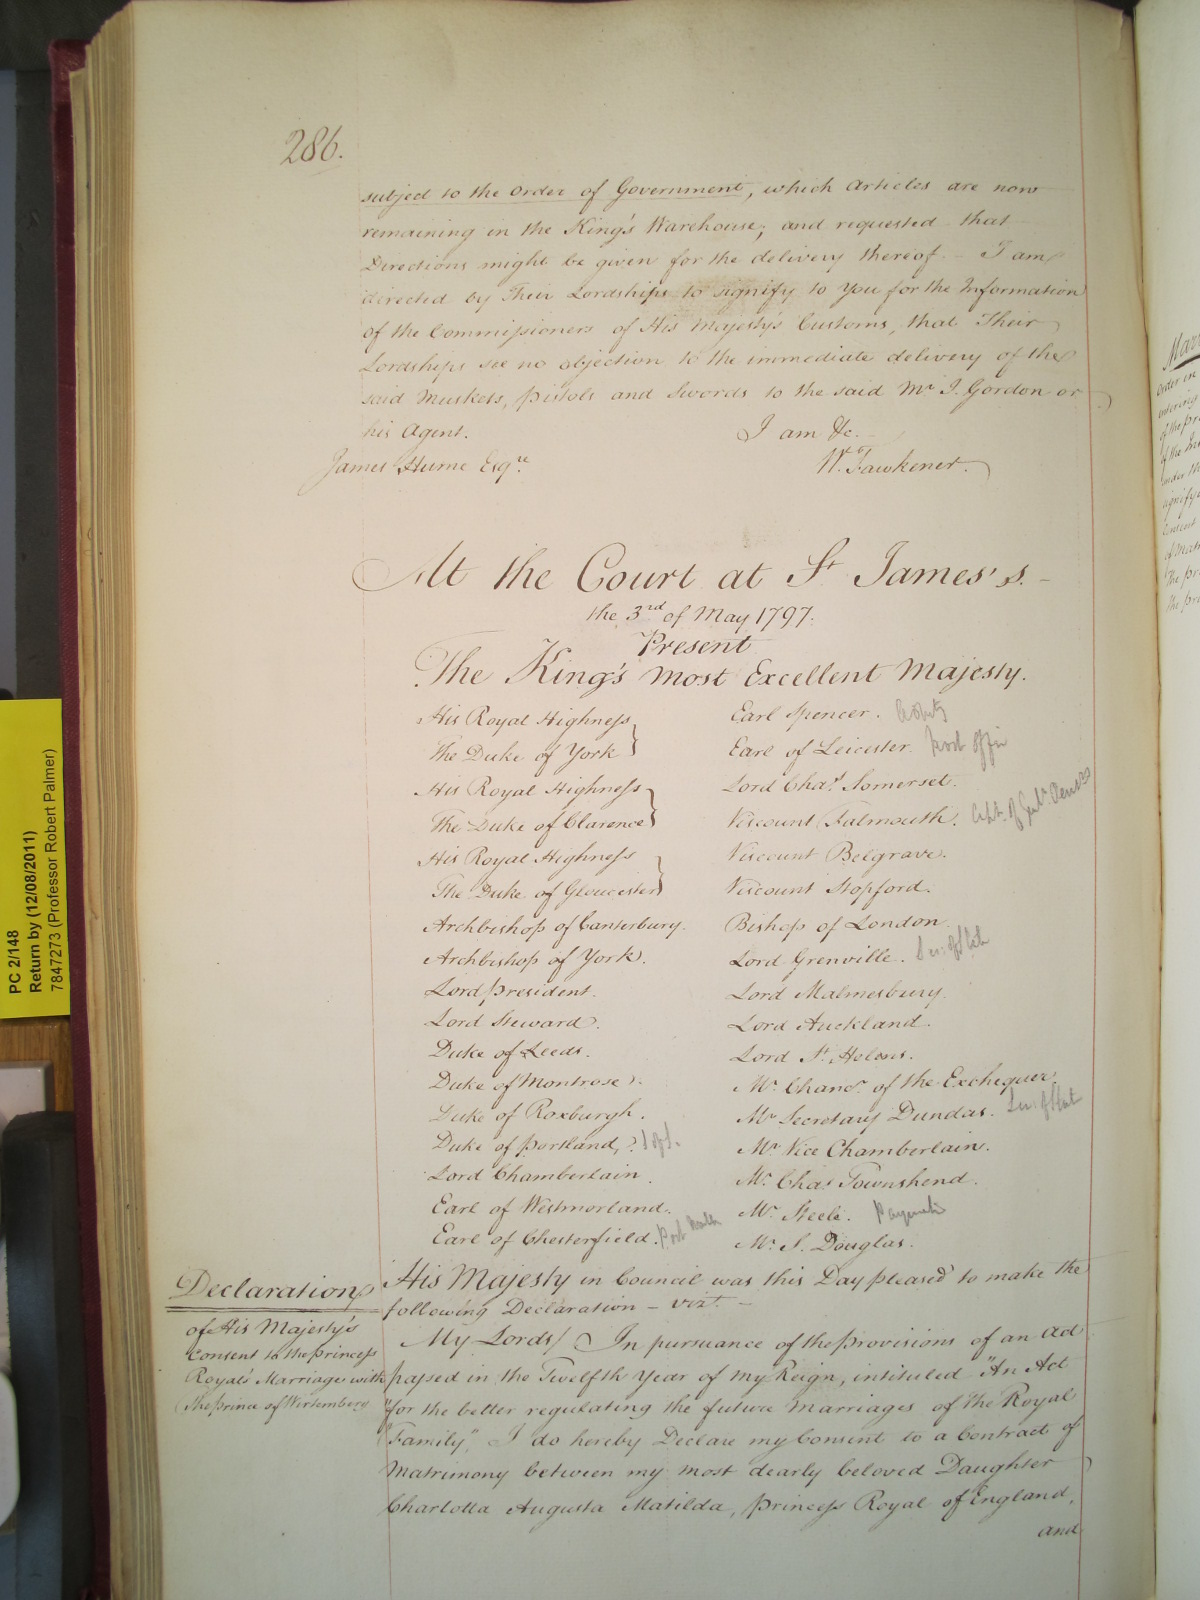 286.
subject to the Order of Government, which Articles are now
remaining in the King's Warehouse; and requested that
Directions might be given for the delivery thereof. – I am
directed by Their Lordships to signify to You for the Information
of the Commissioners of His Majesty's Customs, that Their
Lordships see no objection to the immediate delivery of the
said Muskets, Pistols and Swords to the said Mr. J. Gordon or
his Agent. I am &c.
James Hume Esqre. W. Fawkener.
At the Court at St. James's. –
the 3rd of May 1797.
Present
The King's most Excellent Majesty.
His Royal Highness
The Duke of York
His Royal Highness
The Duke of Clarence
His Royal Highness
The Duke of Gloucester
Archbishop of Canterbury.
Archbishop of York.
Lord President.
Lord Steward.
Duke of Leeds.
Duke of Montrose.
Duke of Roxburgh.
Duke of Portland.
Lord Chamberlain.
Earl of Westmorland.
Earl of Chesterfield.
Earl Spencer.
Earl of Leicester.
Lord Chas. Somerset.
Viscount Falmouth.
Viscount Belgrave.
Viscount Stopford.
Bishop of London.
Lord Grenville.
Lord Malmesbury.
Lord Auckland.
Lord St. Helens.
Mr. Chanr. of the Exchequer.
Mr. Secretary Dundas.
Mr. Vice Chamberlain.
Mr. Chas. Townshend.
Mr. Steele.
Mr. S. Douglas.
Declaration
of His Majesty's
Consent to the Princess
Royal's Marriage with
the Prince of Wirtemberg
His Majesty in Council was this Day pleased to make the
following Declaration – vizt. –
My Lords/ In pursuance of the provisions of an Act
passed in the Twelfth Year of my Reign, intituled "An Act
"for the better regulating the future Marriages of the Royal
"Family", I do hereby Declare my Consent to a Contract of
Matrimony between my most dearly beloved Daughter
Charlotta Augusta Matilda, Princess Royal of England,
and
PC 2/148
Return by (12/08/2011)
7847273 (Professor Robert Palmer)